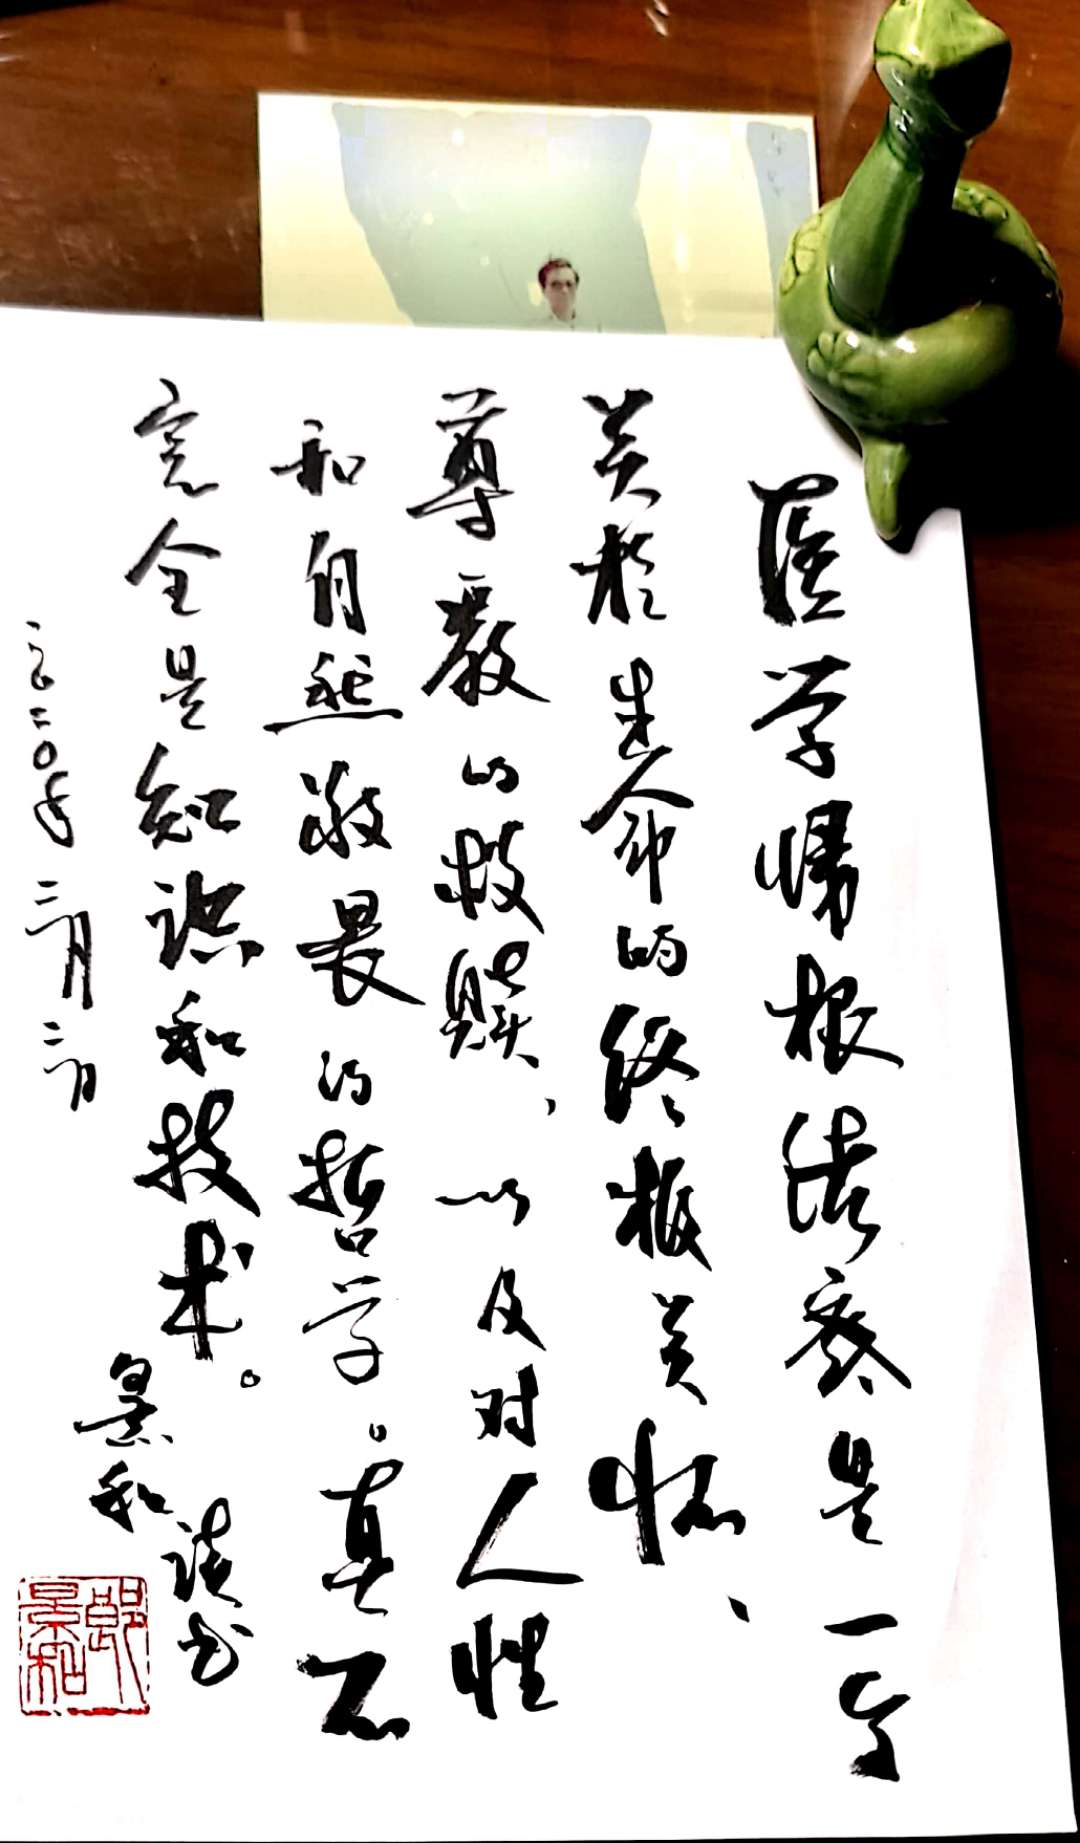 医学归根结底是一
关於生命的终极关怀、
尊嚴的救赎、以及对人性
和自然敬畏的哲学。真不
完全是知识和技术。
景和
读书
二〇二〇年三月二日
郎景和